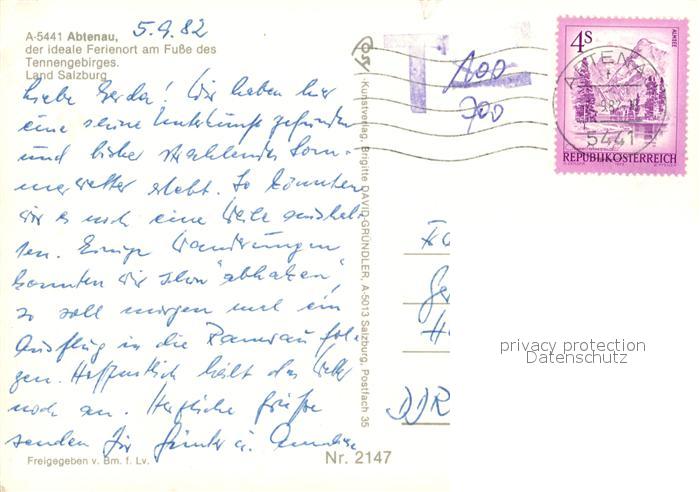 A-5441 Abtenau, 5.9.82
der ideale Ferienort am Fuße des
Tennengebirges.
Land Salzburg
Liebe Gerda! Wir haben hier
eine schöne Unterkunft gefunden
und bisher strahlendes Som-
merwetter erlebt. So könnten
wir es noch eine Weile aushal-
ten. Einige Wanderungen
konnten wir schon "abhaken",
so soll morgen mal ein
Ausflug in die Ramsau fol-
gen. Hoffentlich hält das Wetter
noch an. Herzliche Grüße
senden Dir Günter u. Anneliese
Freigegeben v. Bm. f. Lv.
Nr. 2147
Kunstverlag Brigitte DAVID-GRÜNDLER, A-5013 Salzburg, Postfach 35
T
100
700
4 S
ALMSEE
REPUBLIK ÖSTERREICH
ABTENAU
5441
DDR
privacy protection
Datenschutz